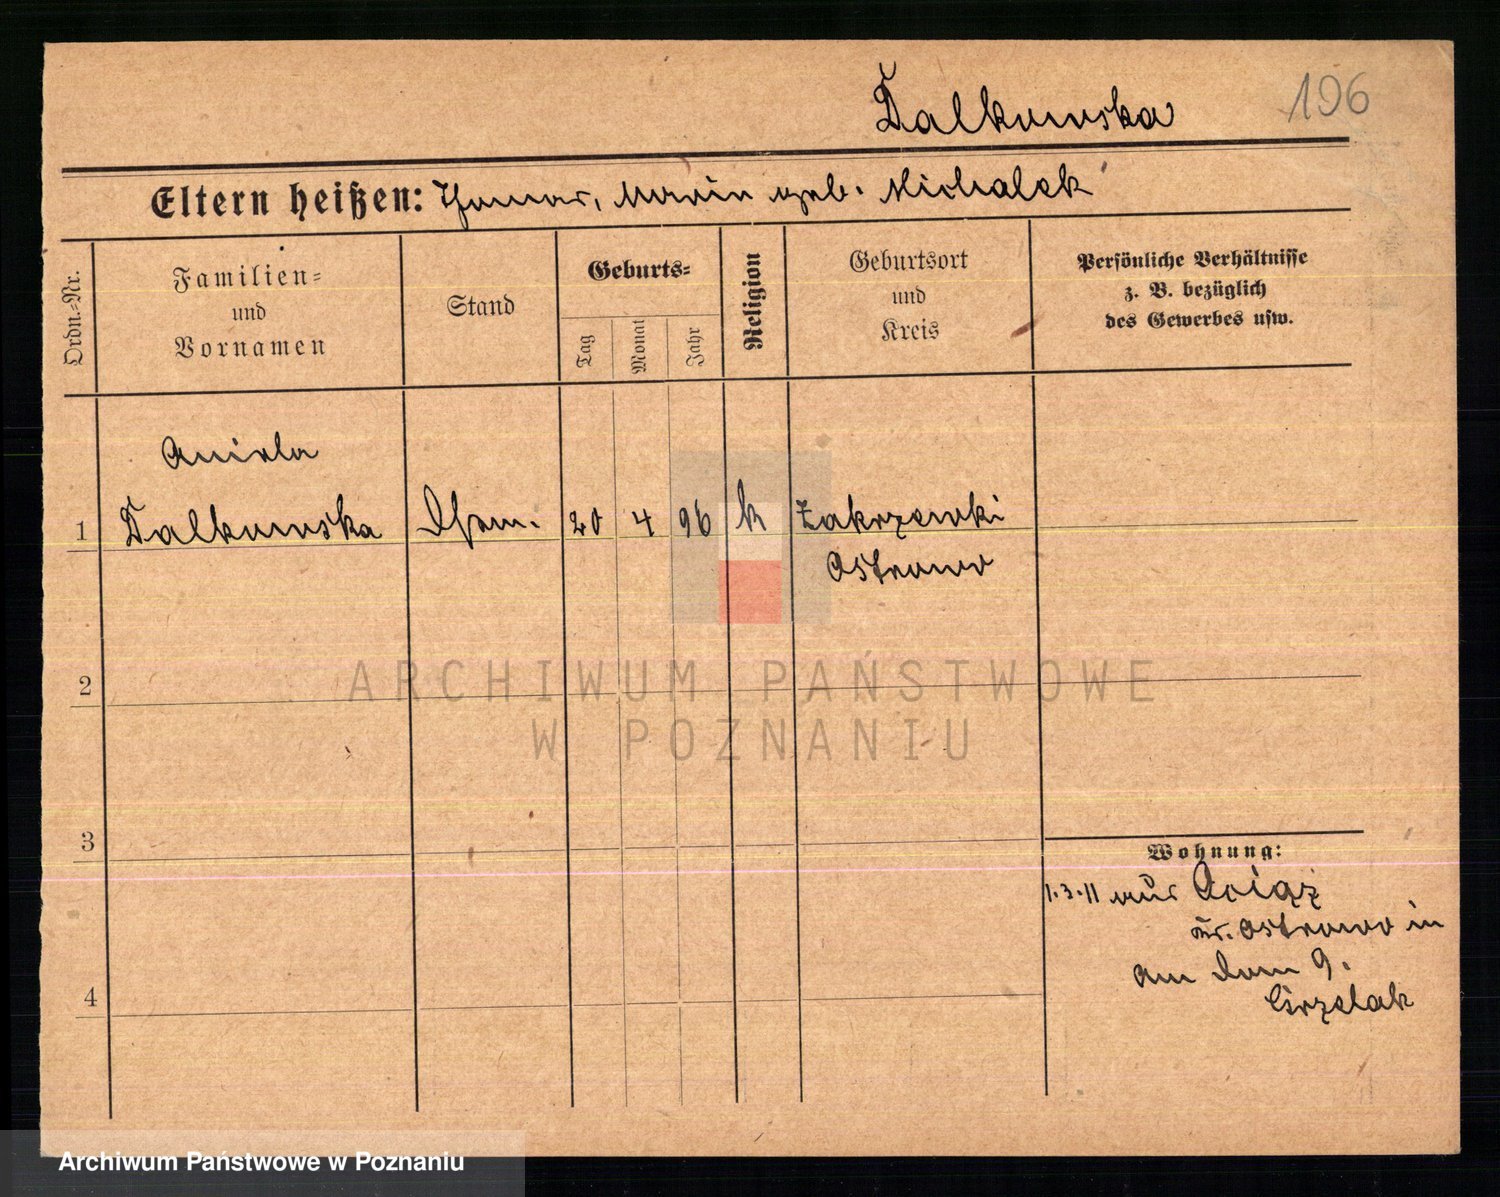 Dalkowska
196
Eltern heißen: Thomas, Maria geb. Michalak
Ordn.=Nr.
Familien=
und
Vornamen
Stand
Geburts=
Tag
Monat
Jahr
Religion
Geburtsort
und
Kreis
Persönliche Verhältnisse
z. B. bezüglich
des Gewerbes usw.
Aniela
1 Dalkowska 20 4 96 k Zakrzewki
Ostrowo
2
3
4
Wohnung:
1.3.11 aus Raciąż
Kr. Ostrowo in
am Dom 9.
Grzelak
ARCHIWUM PAŃSTWOWE
W POZNANIU
Archiwum Państwowe w Poznaniu